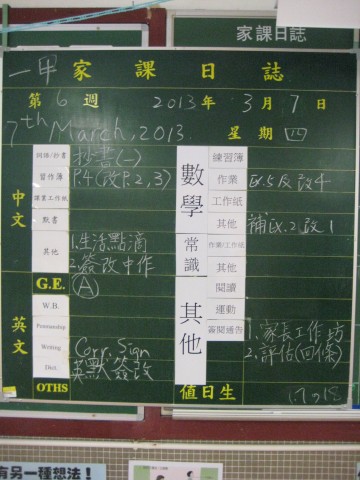 家課日誌
一甲 家課日誌
第 6 週 2013 年 3 月 7 日
7th March, 2013. 星期 四
中文
詞語/抄書 抄書(一)
習作簿 P.4(改P.2,3)
課業工作紙
默書
其他 1.生活點滴
2.簽改中作
G.E. Ⓐ
英文
W.B.
Penmanship
Writing Corr. Sign
Dict. 英默簽改
OTHS
數學
練習簿
作業 E.5及改4
工作紙
其他 補E.2改1
常識
作業/工作紙
其他
其他
閱讀
運動
簽閱通告 1.家長工作坊
2.評估(回條)
值日生 17 18
有另一種想法！